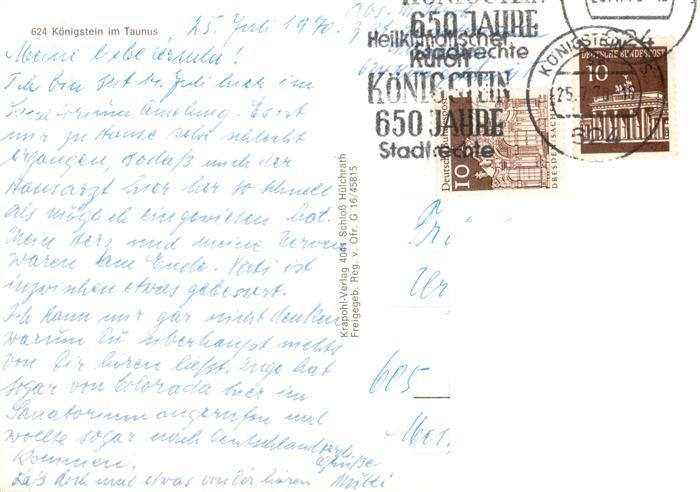 624 Königstein im Taunus
25. Juli 1970
Meine liebe Ursula!
Ich bin seit 14. Juli hier im
Sanatorium Amelung. Es ist
mir zu Hause sehr schlecht
ergangen, sodaß mich der
Hausarzt hier her so schnell
als möglich eingewiesen hat.
Mein Herz und meine Nerven
waren am Ende. Vati ist
inzwischen etwas gebessert.
Ich kann mir gar nicht denken
warum Du überhaupt nichts
von Dir hören läßt. Inge hat
sogar von Colorada hier im
Sanatorium angerufen und
wollte sogar nach Deutschland
kommen. herzl. Grüße
Laß doch mal etwas von Dir hören Mutti
Krapohl-Verlag 4041 Schloß Hülchrath
Freigegeb. Reg. v. Ofr. G 16/45815
Abs.
KÖNIGSTEIN
650 JAHRE
Stadtrechte
Heilklimatischer
Kurort
KÖNIGSTEIN
650 JAHRE
Stadtrechte
KÖNIGSTEIN
25.7.70
624
DEUTSCHE BUNDESPOST
10
Deutsche Bundespost
10
DRESDEN · SACHSEN
Ur
605